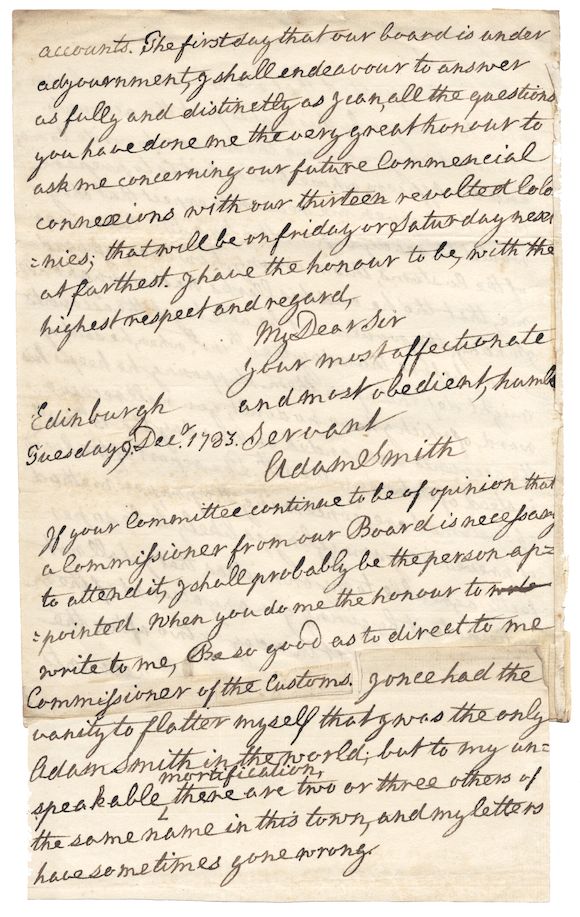 accounts. The first day that our board is under
adjournment, I shall endeavour to answer
as fully and distinctly as I can, all the questions
you have done me the very great honour to
ask me concerning our future Commercial
connexions with our thirteen revolted Colo
=nies; that will be on friday or Saturday next
at farthest. I have the honour to be, with the
highest respect and regard,
My Dear Sir
your most affectionate
and most obedient, humble
Edinburgh
Tuesday 9. Decr. 1783. Servant
Adam Smith
If your Committee continue to be of opinion that
a Commissioner from our Board is necessary
to attend it, I shall probably be the person ap=
=pointed. When you do me the honour to
write to me, Be so good as to direct to me
Commissioner of the Customs. I once had the
vanity to flatter myself that I was the only
Adam Smith in the world; but to my un=
mortification,
speakable there are two or three others of
the same name in this town, and my letters
have sometimes gone wrong.